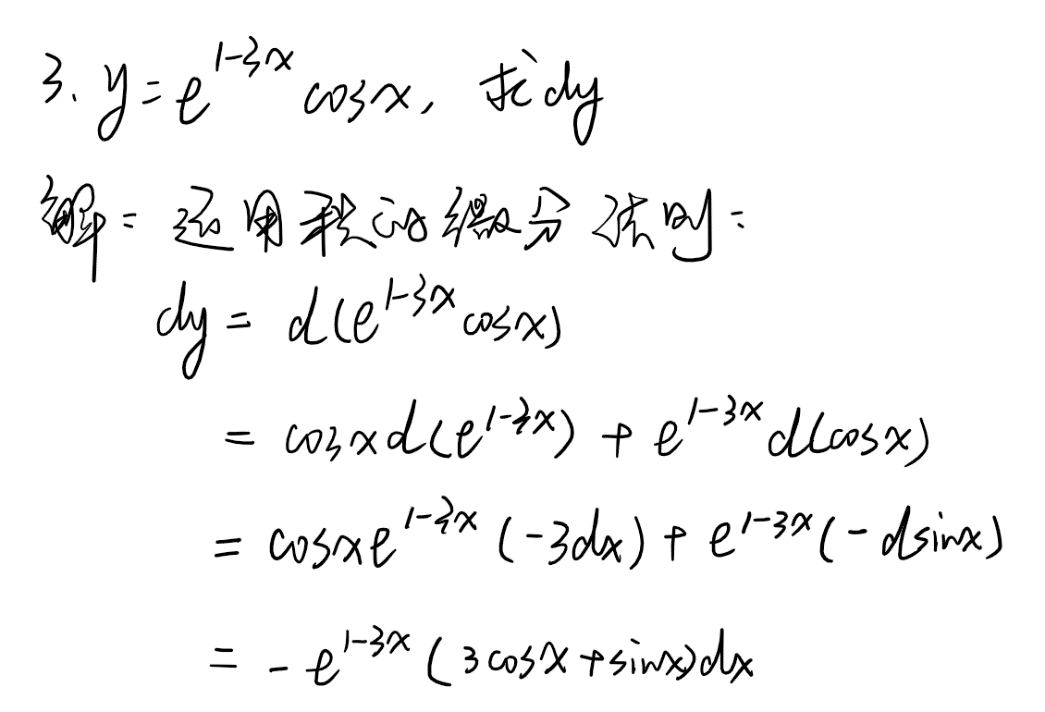 3. y=e^{1-3x} cosx, 求dy
解: 运用积的微分法则:
dy = d(e^{1-3x} cosx)
= cosxd(e^{1-3x}) + e^{1-3x}d(cosx)
= cosxe^{1-3x}(-3dx)+e^{1-3x}(-dsinx)
= -e^{1-3x}(3cosx+sinx)dx